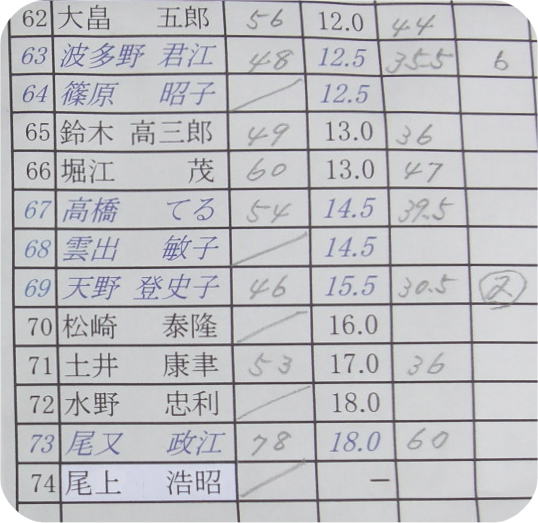 62 大畠 五郎 56 12.0 44
63 波多野 君江 48 12.5 35.5 6
64 篠原 昭子 12.5
65 鈴木 高三郎 49 13.0 36
66 堀江 茂 60 13.0 47
67 高橋 てる 54 14.5 39.5
68 雲出 敏子 14.5
69 天野 登史子 46 15.5 30.5 2
70 松崎 泰隆 16.0
71 土井 康聿 53 17.0 36
72 水野 忠利 18.0
73 尾又 政江 78 18.0 60
74 尾上 浩昭 —